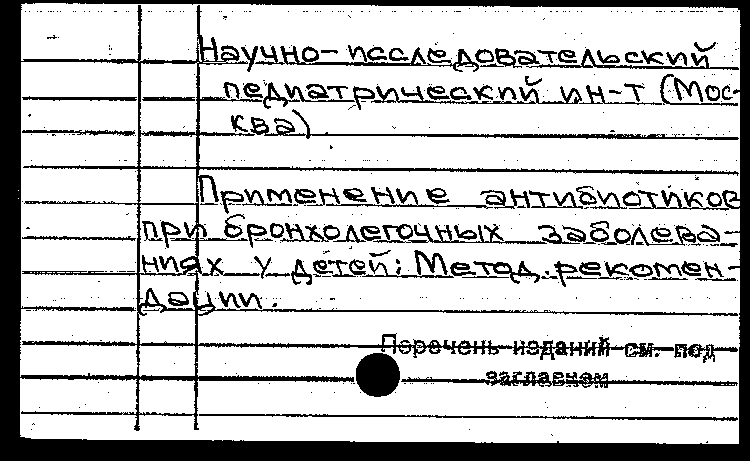 Научно-исследовательский
педиатрический ин-т (Мос-
ква)
Применение антибиотиков
при бронхолегочных заболева-
ниях у детей: Метод. рекомен-
дации.
Перечень изданий см. под
заглавием